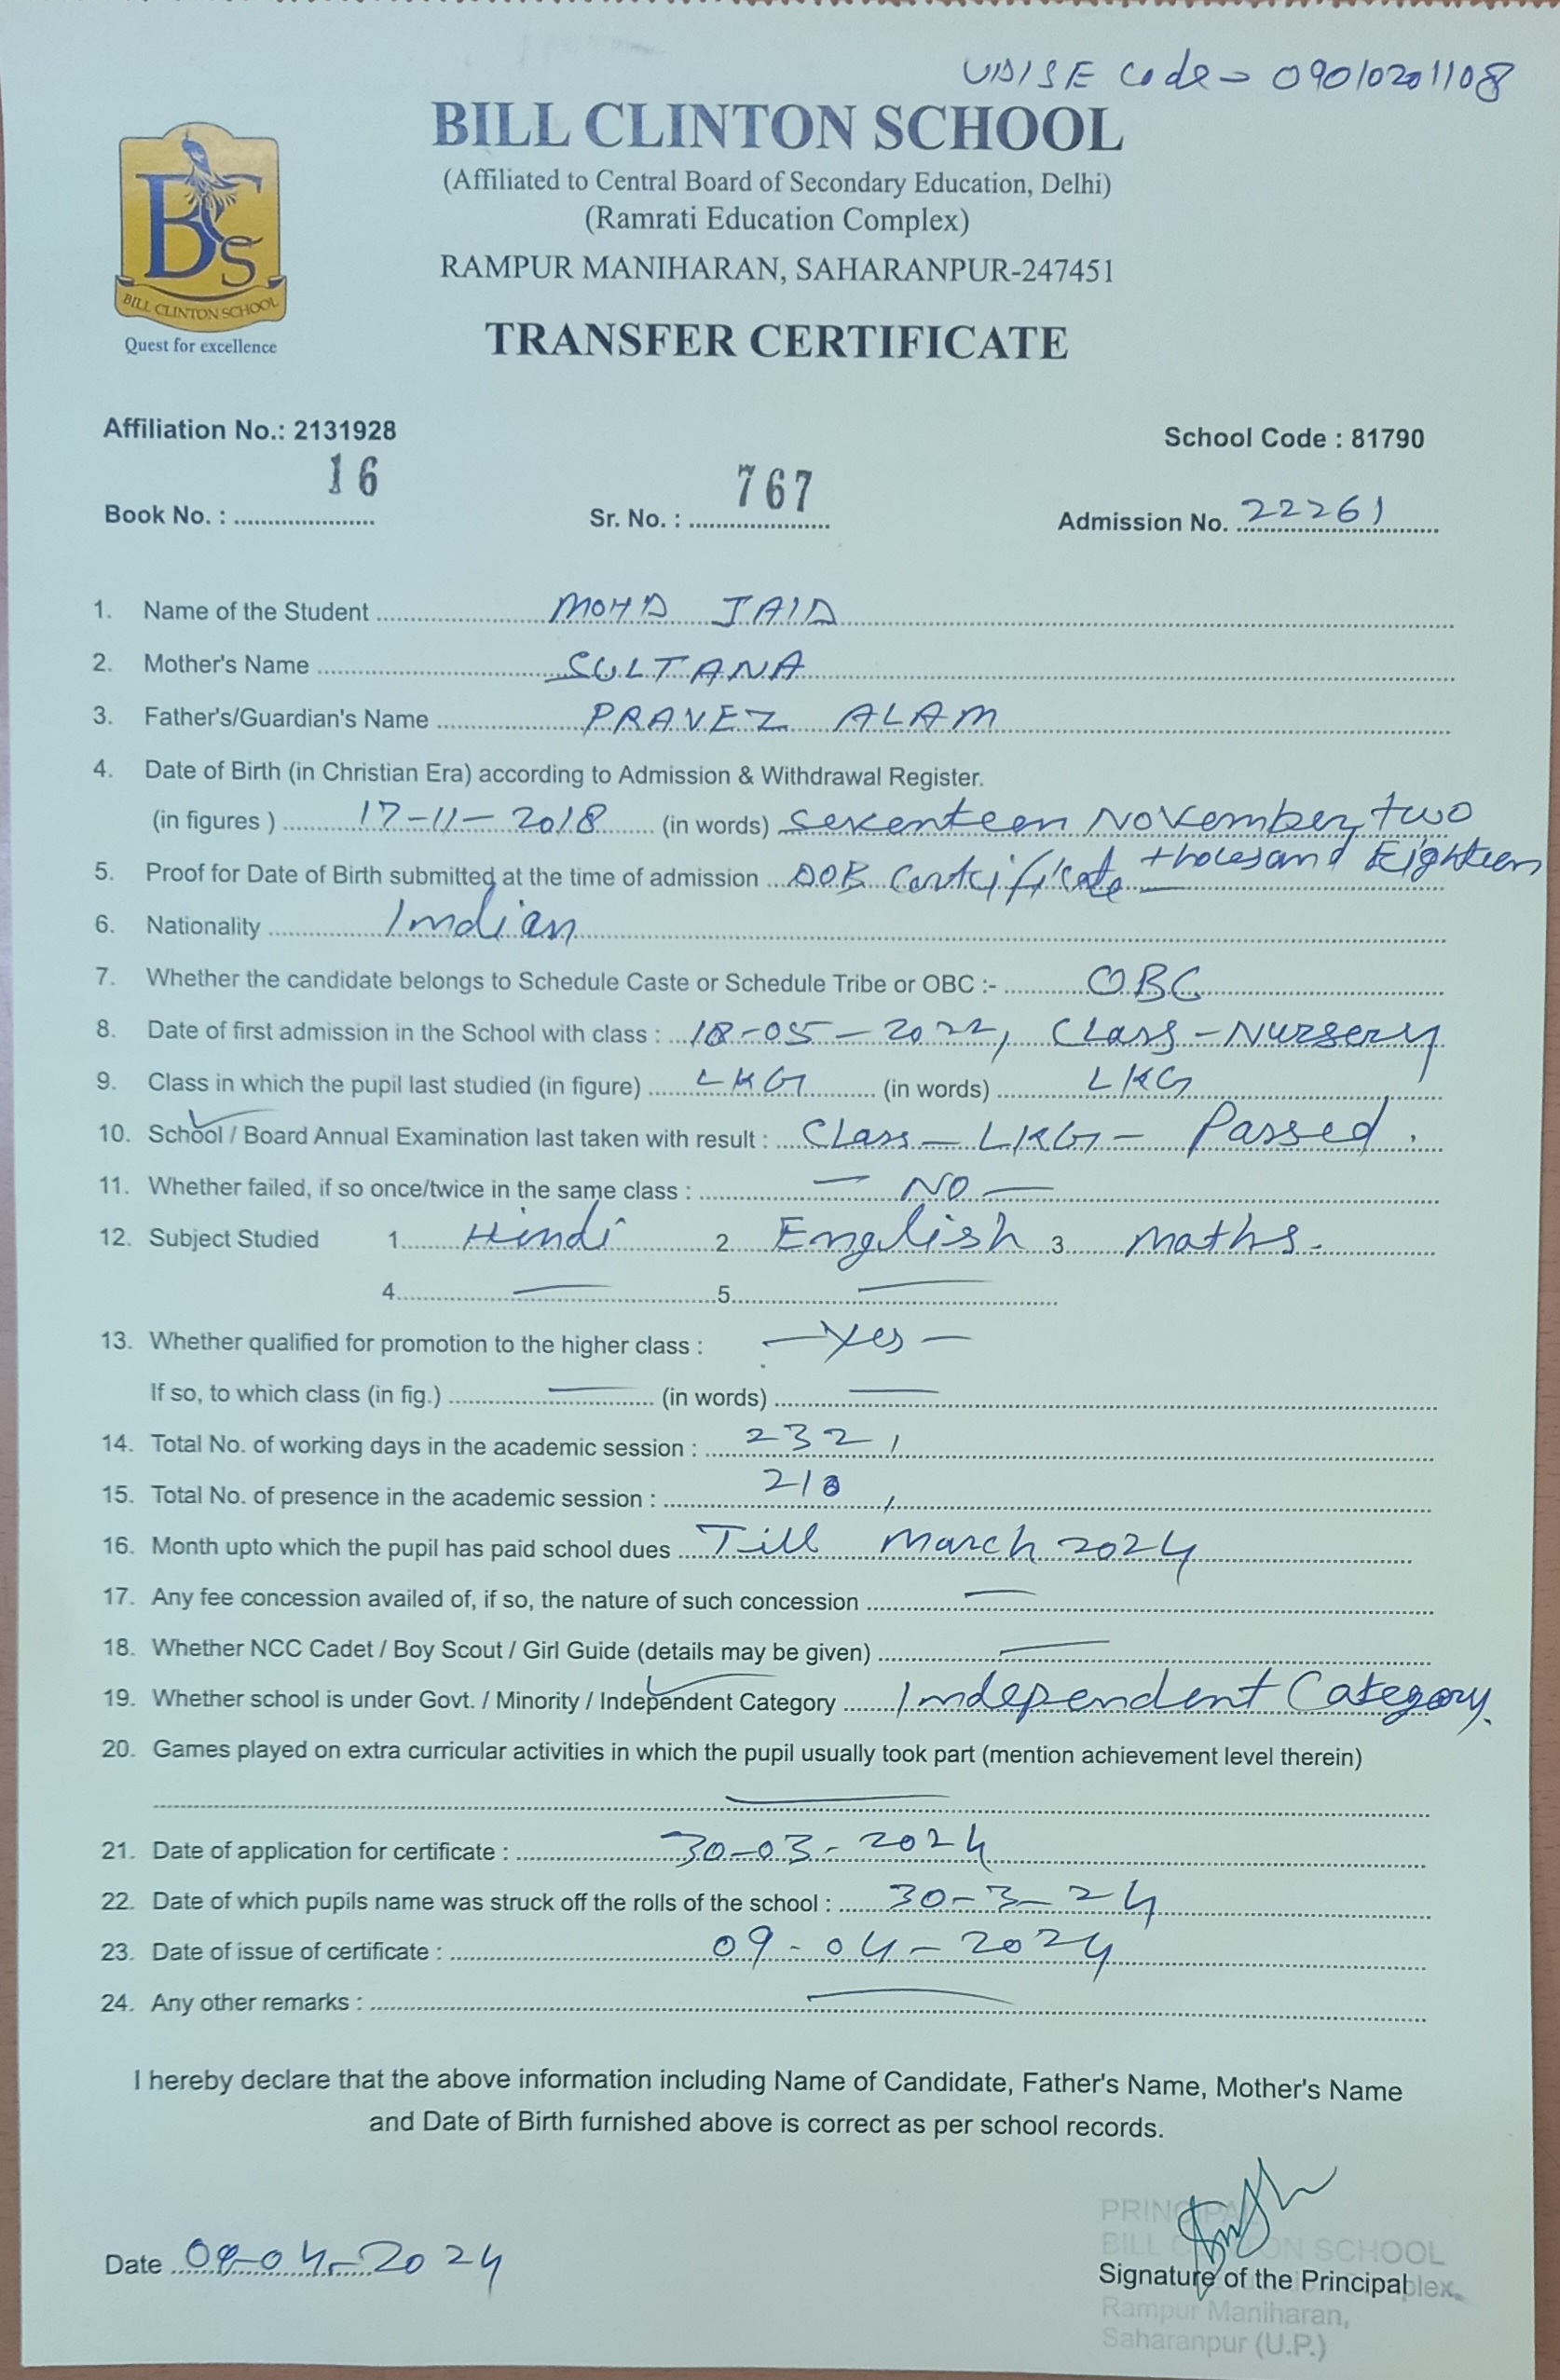 UDISE Code - 09010201108
BILL CLINTON SCHOOL
(Affiliated to Central Board of Secondary Education, Delhi)
(Ramrati Education Complex)
RAMPUR MANIHARAN, SAHARANPUR-247451
BCS
BILL CLINTON SCHOOL
Quest for excellence
TRANSFER CERTIFICATE
Affiliation No.: 2131928 School Code : 81790
Book No. : 16 Sr. No. : 767 Admission No. 22261
1. Name of the Student MOHD JAID
2. Mother's Name SULTANA
3. Father's/Guardian's Name PRAVEZ ALAM
4. Date of Birth (in Christian Era) according to Admission & Withdrawal Register.
(in figures ) 17-11-2018 (in words) Seventeen November two thousand Eighteen
5. Proof for Date of Birth submitted at the time of admission DOB Certificate
6. Nationality Indian
7. Whether the candidate belongs to Schedule Caste or Schedule Tribe or OBC :- OBC
8. Date of first admission in the School with class : 18-05-2022, Class - Nursery
9. Class in which the pupil last studied (in figure) LKG (in words) LKG
10. School / Board Annual Examination last taken with result : Class - LKG - Passed.
11. Whether failed, if so once/twice in the same class : - NO -
12. Subject Studied 1. Hindi 2. English 3. Maths.
4. — 5. —
13. Whether qualified for promotion to the higher class : - Yes -
If so, to which class (in fig.) — (in words) —
14. Total No. of working days in the academic session : 232,
15. Total No. of presence in the academic session : 210,
16. Month upto which the pupil has paid school dues Till March 2024
17. Any fee concession availed of, if so, the nature of such concession —
18. Whether NCC Cadet / Boy Scout / Girl Guide (details may be given) —
19. Whether school is under Govt. / Minority / Independent Category Independent Category.
20. Games played on extra curricular activities in which the pupil usually took part (mention achievement level therein)
—
21. Date of application for certificate : 30-03-2024
22. Date of which pupils name was struck off the rolls of the school : 30-3-24
23. Date of issue of certificate : 09-04-2024
24. Any other remarks : —
I hereby declare that the above information including Name of Candidate, Father's Name, Mother's Name
and Date of Birth furnished above is correct as per school records.
PRINCIPAL
BILL CLINTON SCHOOL
Date 09-04-2024 Signature of the Principal
Rampur Maniharan,
Saharanpur (U.P.)